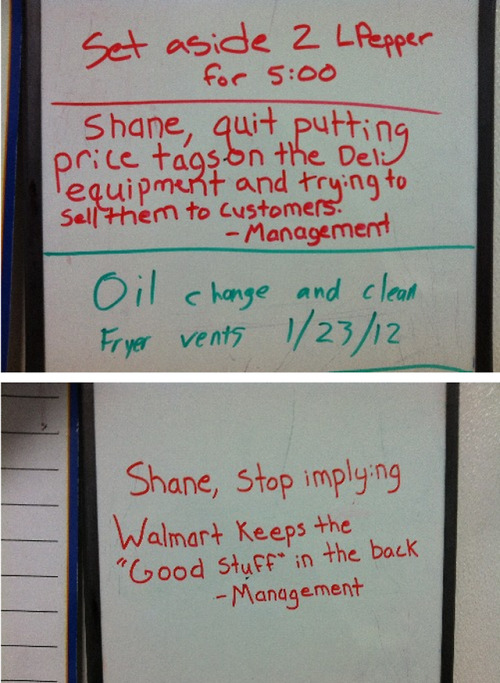 Set aside 2 LPepper
for 5:00
Shane, quit putting
price tags on the Deli
equipment and trying to
sell them to customers.
- Management
Oil change and clean
Fryer vents 1/23/12
Shane, Stop implying
Walmart Keeps the
"Good Stuff" in the back
- Management